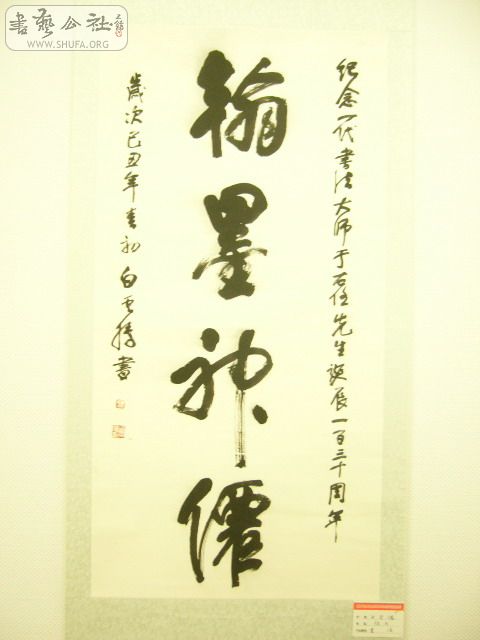 纪念一代书法大师于右任先生诞辰一百三十周年
翰墨神僊
歲次己丑年春初白雲騰書
書藝公社
WWW.SHUFA.ORG